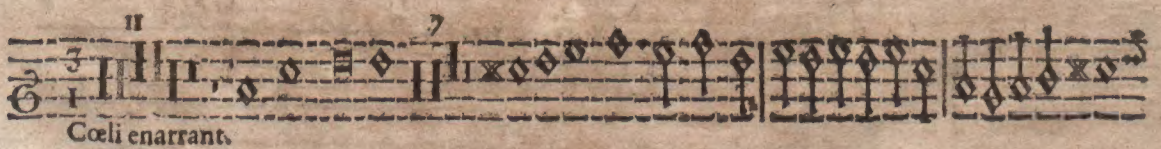 11 7
3
1
Cœli enarrant.